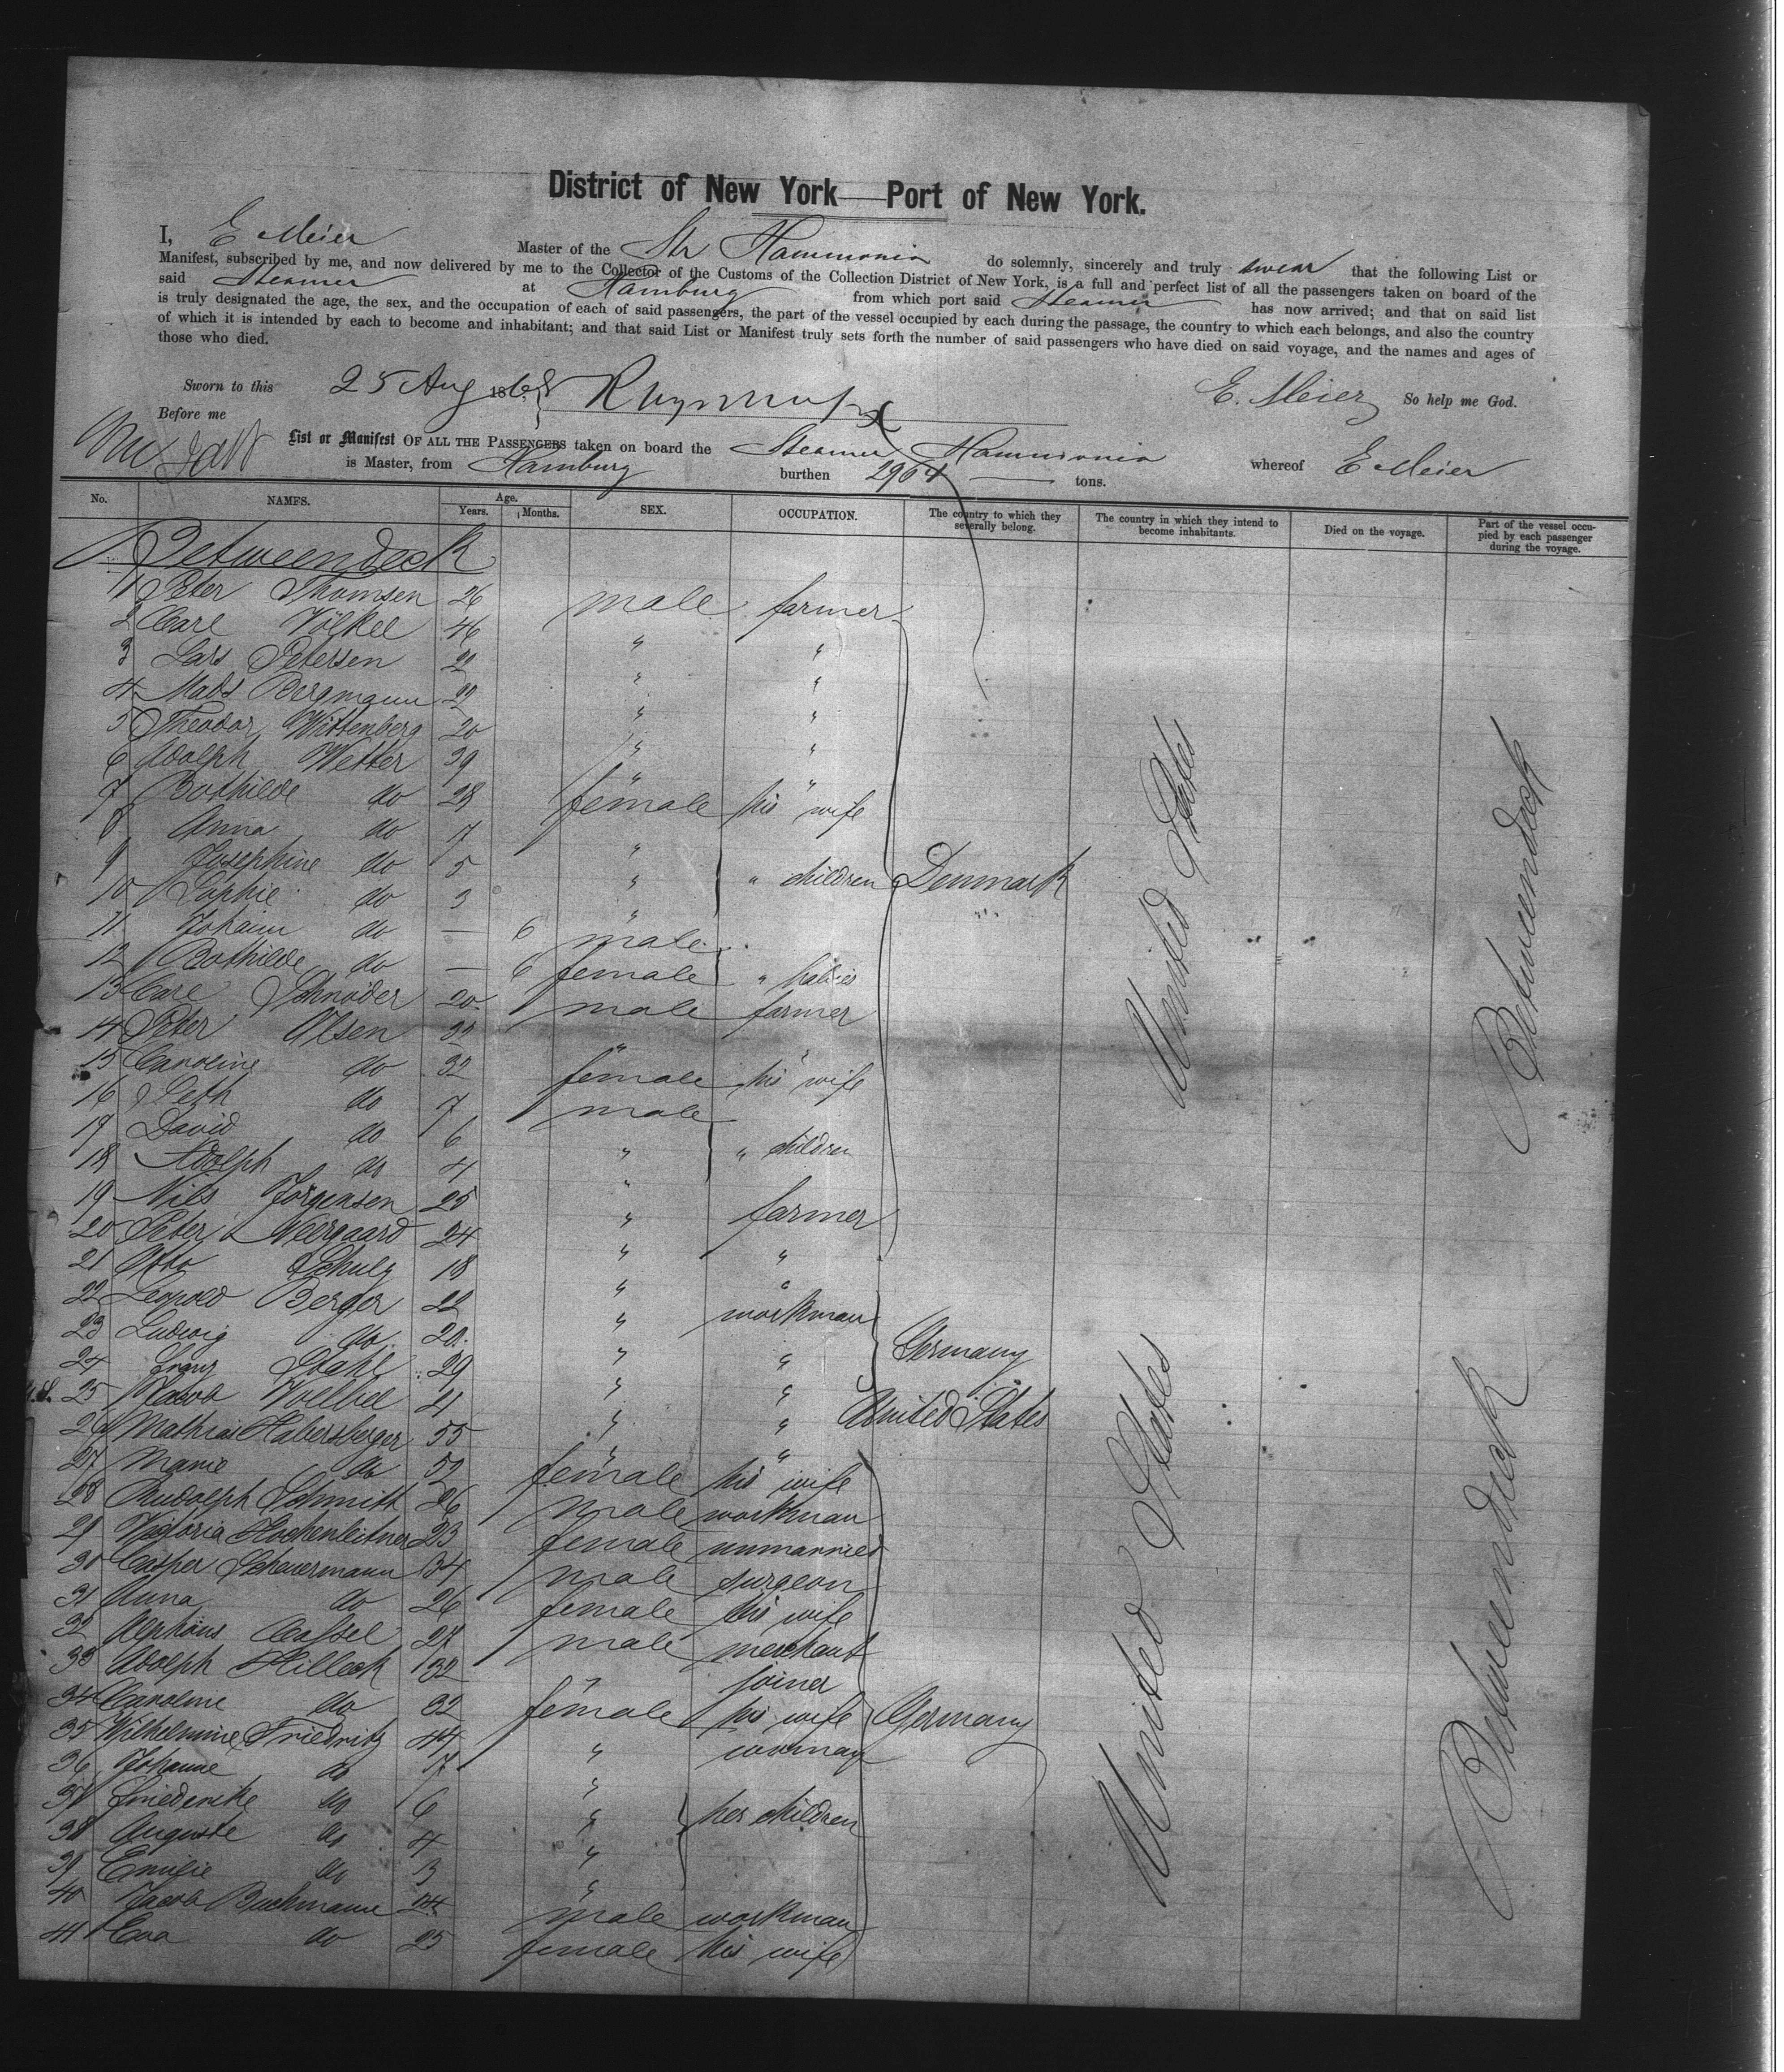 District of New York—Port of New York.
I, E Meier Master of the Str Hammonia do solemnly, sincerely and truly swear that the following List or
Manifest, subscribed by me, and now delivered by me to the Collector of the Customs of the Collection District of New York, is a full and perfect list of all the passengers taken on board of the
said Steamer at Hamburg from which port said Steamer has now arrived; and that on said list
is truly designated the age, the sex, and the occupation of each of said passengers, the part of the vessel occupied by each during the passage, the country to which each belongs, and also the country
of which it is intended by each to become and inhabitant; and that said List or Manifest truly sets forth the number of said passengers who have died on said voyage, and the names and ages of
those who died.
Sworn to this 25 Aug 1868 E. Meier So help me God.
Before me
List or Manifest OF ALL THE PASSENGERS taken on board the Steamer Hammonia whereof E Meier
is Master, from Hamburg burthen 2964 tons.
No. NAMES. Age. Years. Months. SEX. OCCUPATION. The country to which they severally belong. The country in which they intend to become inhabitants. Died on the voyage. Part of the vessel occupied by each passenger during the voyage.
Betweendeck
1 Peter Thomsen 26 male farmer
2 Carl Völkel 46 " "
3 Lars Petersen 22 " "
4 Mads Bergmann 22 " "
5 Theodor Wittenberg 20 " "
6 Adolph Wetter 29 " "
7 Bothilde do 28 female his wife
8 Anna do 7 "
9 Josephine do 5 " " children Denmark
10 Sophie do 3 "
11 Johann do — 6 male
12 Bothilde do — 6 female " babies
13 Carl Schröder 20 male farmer
14 Peter Olsen " "
15 Caroline do 32 female his wife
16 Seth do 7 male
17 David do 6 " " children
18 Adolph do 4 "
19 Nils Jörgensen 25 " farmer
20 Peter Neergaard 24 " "
21 Otto Schulz 18 " "
22 Leopold Berger 22 " workman
23 Ludwig do 20 " " Germany
24 Franz Stahl 29 " "
25 Jacob 21 " " United States
26 Mathias Habersberger 55 " "
27 Marie do 52 female his wife
28 Rudolph Schmitt 26 male workman
29 Victoria Hochenleitner 23 female unmarried
30 Casper Scheuermann 34 male surgeon
31 Anna do 26 female his wife
32 Alphons Cassel 27 male merchant
33 Adolph Hilleck 32 " joiner
34 Caroline do 32 female his wife Germany
35 Wilhelmine Friedritz 44 " woman
36 Johanne do 7 "
37 Friederike do 6 " her children
38 Auguste do 4 "
39 Emilie do 3 "
40 Jacob Buchmann 24 male workman
41 Eva do 25 female his wife
United States
Betweendeck
United States
Betweendeck